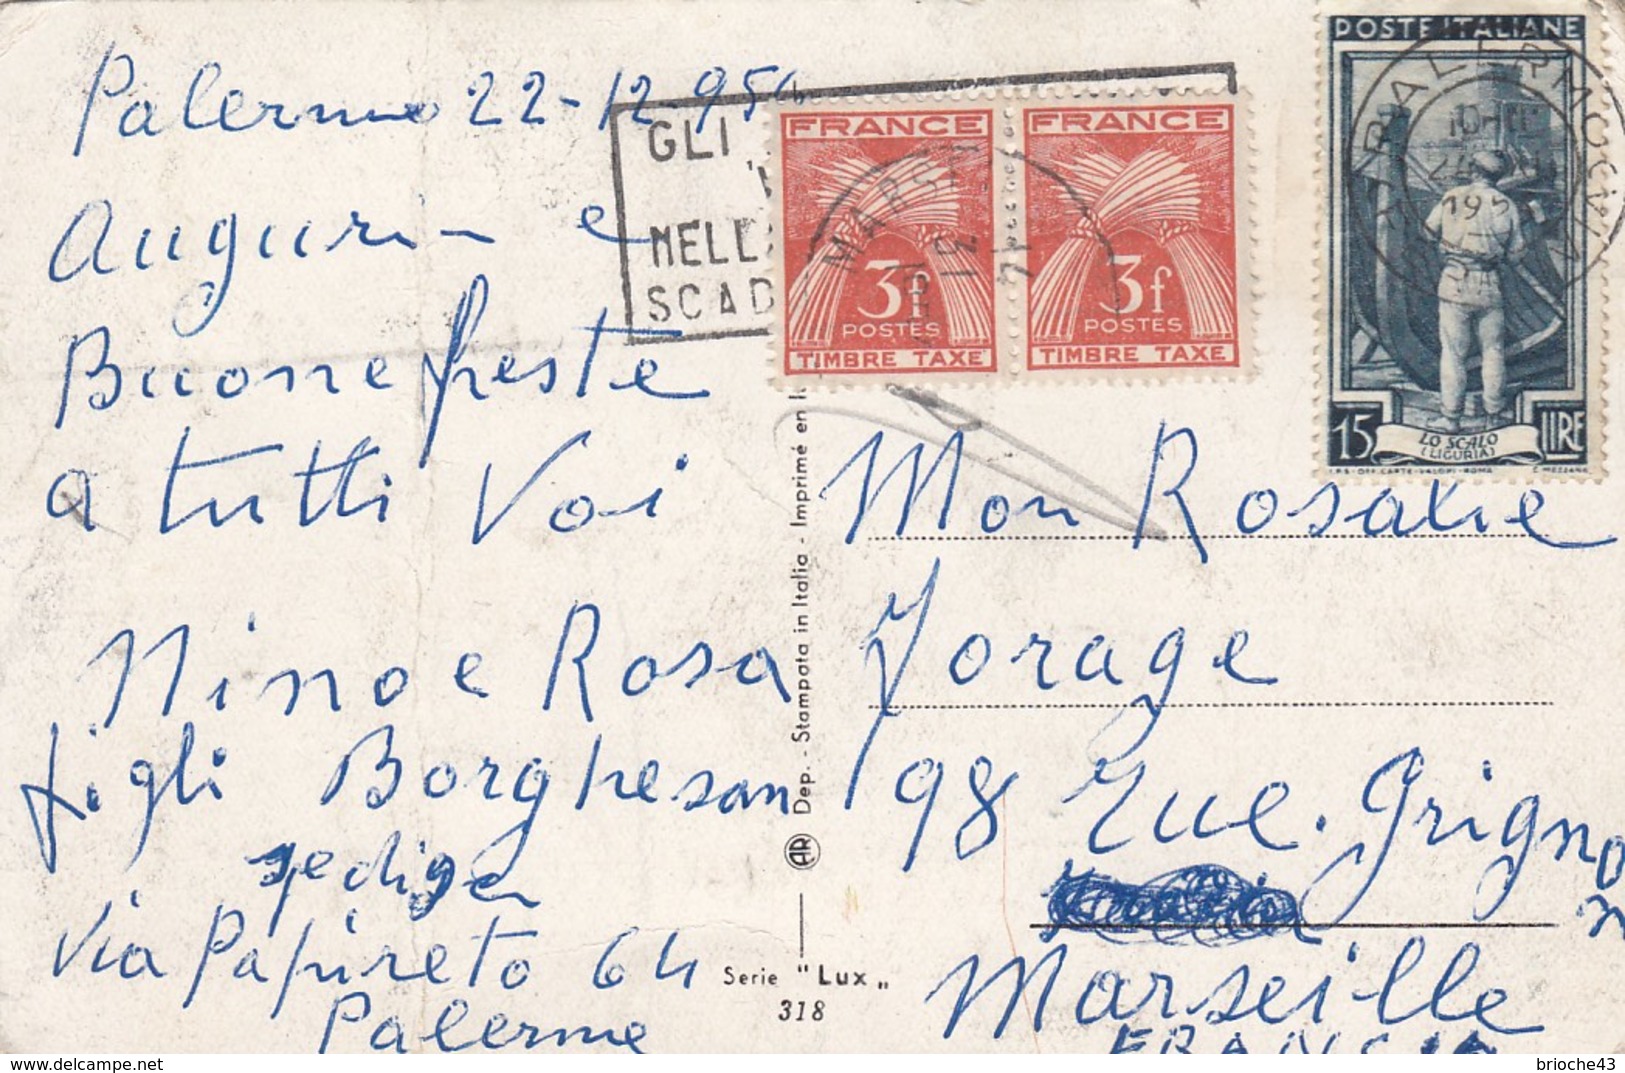 Palermo 22-12-954
Auguri e
Buone feste
a tutti Voi
Nino e Rosa
figli Borghesan
Via Papireto 64
Palermo
GLI
NELL
SCAD
FRANCE
3f
POSTES
TIMBRE TAXE
FRANCE
3f
POSTES
TIMBRE TAXE
POSTE ITALIANE
PALERMO
15 LIRE
LO SCALO
(LIGURIA)
I.P.S.-OFF. CARTE-VALORI-ROMA
C. MEZZANA
Dep. - Stampata in Italia - Imprimé en
AR
Serie "Lux"
318
Mon Rosalie
Yorage
98 Rue. Grignon
Marseille
FRANCIA
brioche43